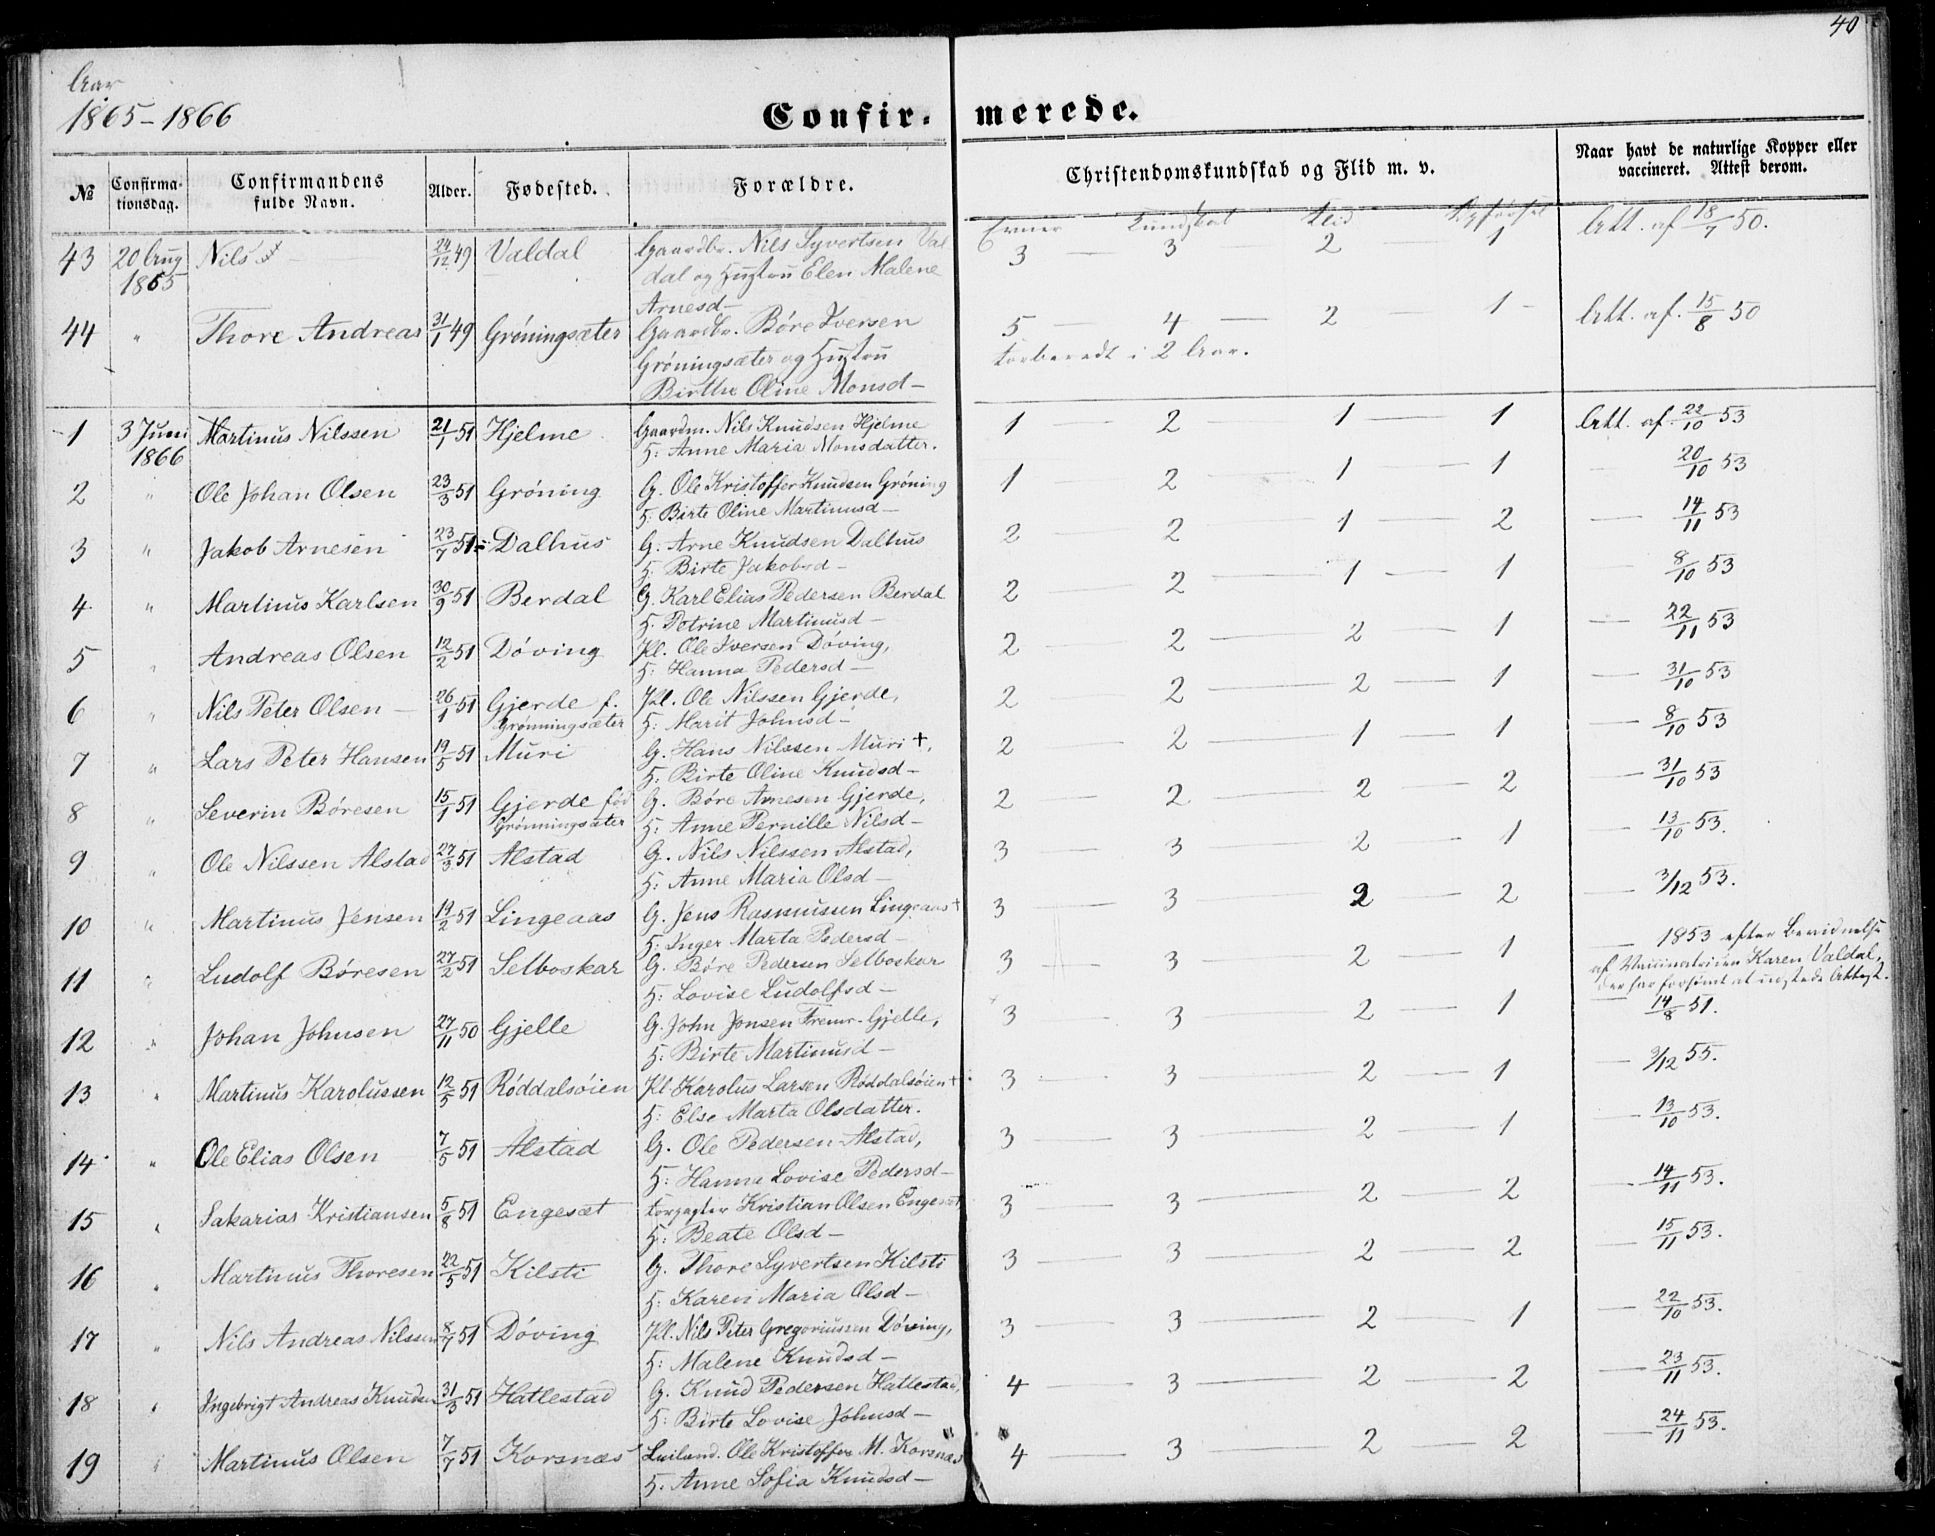 40
Aar
1865-1866
Confir- merede.
№ Confirma-tionsdag. Confirmandens fulde Navn. Alder. Fødested. Forældre. Christendomskundskab og Flid m. v. Naar havt de naturlige Kopper eller vaccineret. Attest derom.
Evner Kundskab Flid Opførsel
43 20 Aug 1865 Nils 24/12 49 Valdal Gaardbr. Nils Syvertsen Val 3 — 3 2 1 Att. af 18/7 50.
dal og Hustru Elen Malene
Arnesd—
44 " Thore Andreas 31/1 49 Grøningsæter Gaardbr. Børe Iversen 5 — 4 — 2 — 1 — Att. af. 15/8 50
Grøningsæter og Hustru forberedt i 2 Aar.
Birthe Oline Monsd—
1 3 Juni 1866 Martinus Nilssen 21/1 51 Hjelme Gaardm. Nils Knudsen Hjelme 1 — 2 — 1 — 1 Att. af. 22/10 53
H: Anne Maria Monsdatter.
2 " Ole Johan Olsen 23/3 51 Grøning G. Ole Kristoffer Knudsen Grøning 1 — 2 — 1 — 1 — 20/10 53
H: Birte Oline Martinusd—
3 " Jakob Arnesen 23/7 51 Dalhus G. Arne Knudsen Dalhus 2 — 2 — 1 — 2 — 14/11 53
H: Birte Jakobsd—
4 " Martinus Karlsen 30/9 51 Berdal G. Karl Elias Pedersen Berdal 2 — 2 — 1 — 1 — 8/10 53
H. Petrine Martinusd—
5 " Andreas Olsen 12/2 51 Døving Pl. Ole Iversen Døving, 2 — 2 — 2 — 1 — 22/11 53
H: Hanna Pedersd—
6 " Nils Peter Olsen — 26/1 51 Gjerde f. Pl. Ole Nilssen Gjerde, 2 — 2 — 2 — 1 — 31/10 53
Grønningsæter H: Marit Johnsd—
7 " Lars Peter Hansen 19/5 51 Muri G. Hans Nilssen Muri †, 2 — 2 — 1 — 1 — 8/10 53
H: Birte Oline Knudsd—
8 " Severin Børesen 15/1 51 Gjerde fød G. Børe Arnesen Gjerde, 2 — 2 — 2 — 2 — 31/10 53
Grønningsæter H: Anne Pernille Nilsd—
9 " Ole Nilssen Alstad 27/3 51 Alstad G. Nils Nilssen Alstad, 3 — 3 — 2 — 1 — 13/10 53.
H: Anne Maria Olsd—
10 " Martinus Jensen 19/2 51 Lingeaas G. Jens Rasmussen Lingeaas † 3 — 3 — 2 — 2 — 3/12 53.
H: Inger Marta Pedersd—
11 " Ludolf Børesen 27/2 51 Selboskar G. Børe Pedersen Selboskar 3 — 3 — 2 — 1 — 1853 efter Bevidnelse
af Vaccinatricen Karen Valdal,
H: Lovise Ludolfsd— der har forsømt at udstede Attest.
12 " Johan Johnsen 27/11 50 Gjelle G. John Jonsen Fremr-Gjelle, 3 — 3 — 2 — 1 — 14/8 51.
H: Birte Martinusd—
13 " Martinus Karolussen 12/5 51 Røddalsøien Pl. Karolus Larsen Røddalsøien † 3 — 3 — 2 — 1 — 3/12 55.
H: Else Marta Olsdatter.
14 " Ole Elias Olsen — 7/5 51 Alstad G. Ole Pedersen Alstad, 3 — 3 — 2 — 1 — 13/10 53.
H: Hanna Lovise Pedersd—
15 " Sakarias Kristiansen 5/8 51 Engesæt Forpagter Kristian Olsen Engesæt, 3 — 3 — 2 — 2 — 14/11 53.
H: Beate Olsd—
16 " Martinus Thoresen 22/5 51 Kilsti G. Thore Syvertsen Kilsti 3 — 3 — 2 — 2 — 15/11 53.
H: Karen Maria Olsd—
17 " Nils Andreas Nilssen 8/7 51 Døving Pl. Nils Peter Gregoriussen Døving, 3 — 3 — 2 — 1 — 22/10 53.
H: Malene Knudsd—
18 " Ingebrigt Andreas Knudsen 31/3 51 Hatlestad G. Knud Pedersen Hatlestad, 4 — 3 — 2 — 2 — 23/11 53.
H: Birte Lovise Johnsd—
19 " Martinus Olsen 7/7 51 Korsnæs Ole Kristoffer M. Korsnæs 4 — 3 — 2 — 2 — 24/11 53.
H. Anne Sofia Knudsd—